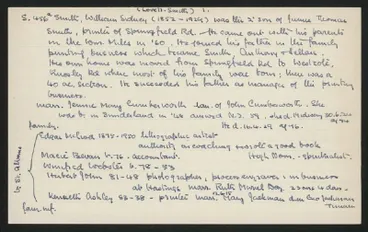 (Lovell-Smith) 1.
S, 458a Smith, William Sidney (1852-1929) was the 2nd son of James Thomas
Smith, printer of Springfield Rd. He came out with his parents
in the Torr. Miles in '60. He joined his father in the family
printing business which became Smith, Anthony & Sellars.
His own home was moved from Springfield Rd to Westcote,
Knowles Rd where most of his family was born; there was a
40 ac. section. He succeeded his father as manager of the printing
business.
marr. Jennie Mary Cumberworth dau. of John Cumberworth. She
was b. in Sunderland in '48 arrived N.Z. died
family.
Edgar 1875-1950 lithographic artist
authority on coaching wrote a good book
Macie Bevan b.76 - accountant. Hugh Norm.
Winifred 78 - 83
Herbert John 81-48 photographer, process engraver, in business
at Hastings marr. Ruth 2 sons 4 dau.
Kenneth Ashley 83-58 - printer marr. Mary Jackman dau
fam. inf.